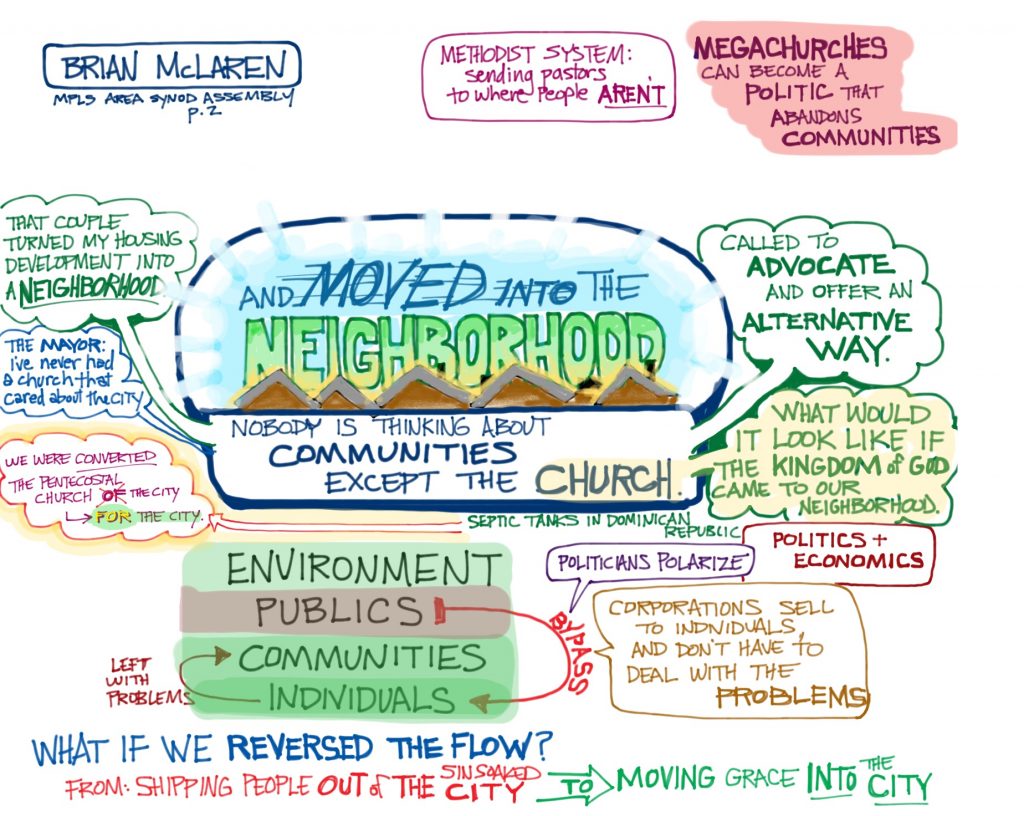 BRIAN McLAREN
MPLS AREA SYNOD ASSEMBLY
p.2
METHODIST SYSTEM:
sending pastors
to where people AREN'T
MEGACHURCHES
CAN BECOME A
POLITIC THAT
ABANDONS
COMMUNITIES
THAT COUPLE
TURNED MY HOUSING
DEVELOPMENT INTO
A NEIGHBORHOOD.
THE MAYOR:
i've never had
a church that
cared about the CITY
WE WERE CONVERTED
THE PENTECOSTAL
CHURCH OF THE CITY
FOR THE CITY.
AND MOVED INTO THE
NEIGHBORHOOD
NOBODY IS THINKING ABOUT
COMMUNITIES
EXCEPT THE CHURCH.
CALLED TO
ADVOCATE
AND OFFER AN
ALTERNATIVE
WAY.
WHAT WOULD
IT LOOK LIKE IF
THE KINGDOM of GOD
CAME TO OUR
NEIGHBORHOOD.
SEPTIC TANKS IN DOMINICAN
REPUBLIC
POLITICS +
ECONOMICS
POLITICIANS POLARIZE
ENVIRONMENT
PUBLICS
COMMUNITIES
INDIVIDUALS
BYPASS
LEFT
WITH
PROBLEMS
CORPORATIONS SELL
TO INDIVIDUALS,
AND DON'T HAVE TO
DEAL WITH THE
PROBLEMS
WHAT IF WE REVERSED THE FLOW?
FROM: SHIPPING PEOPLE OUT of THE SINSOAKED CITY TO MOVING GRACE INTO THE CITY